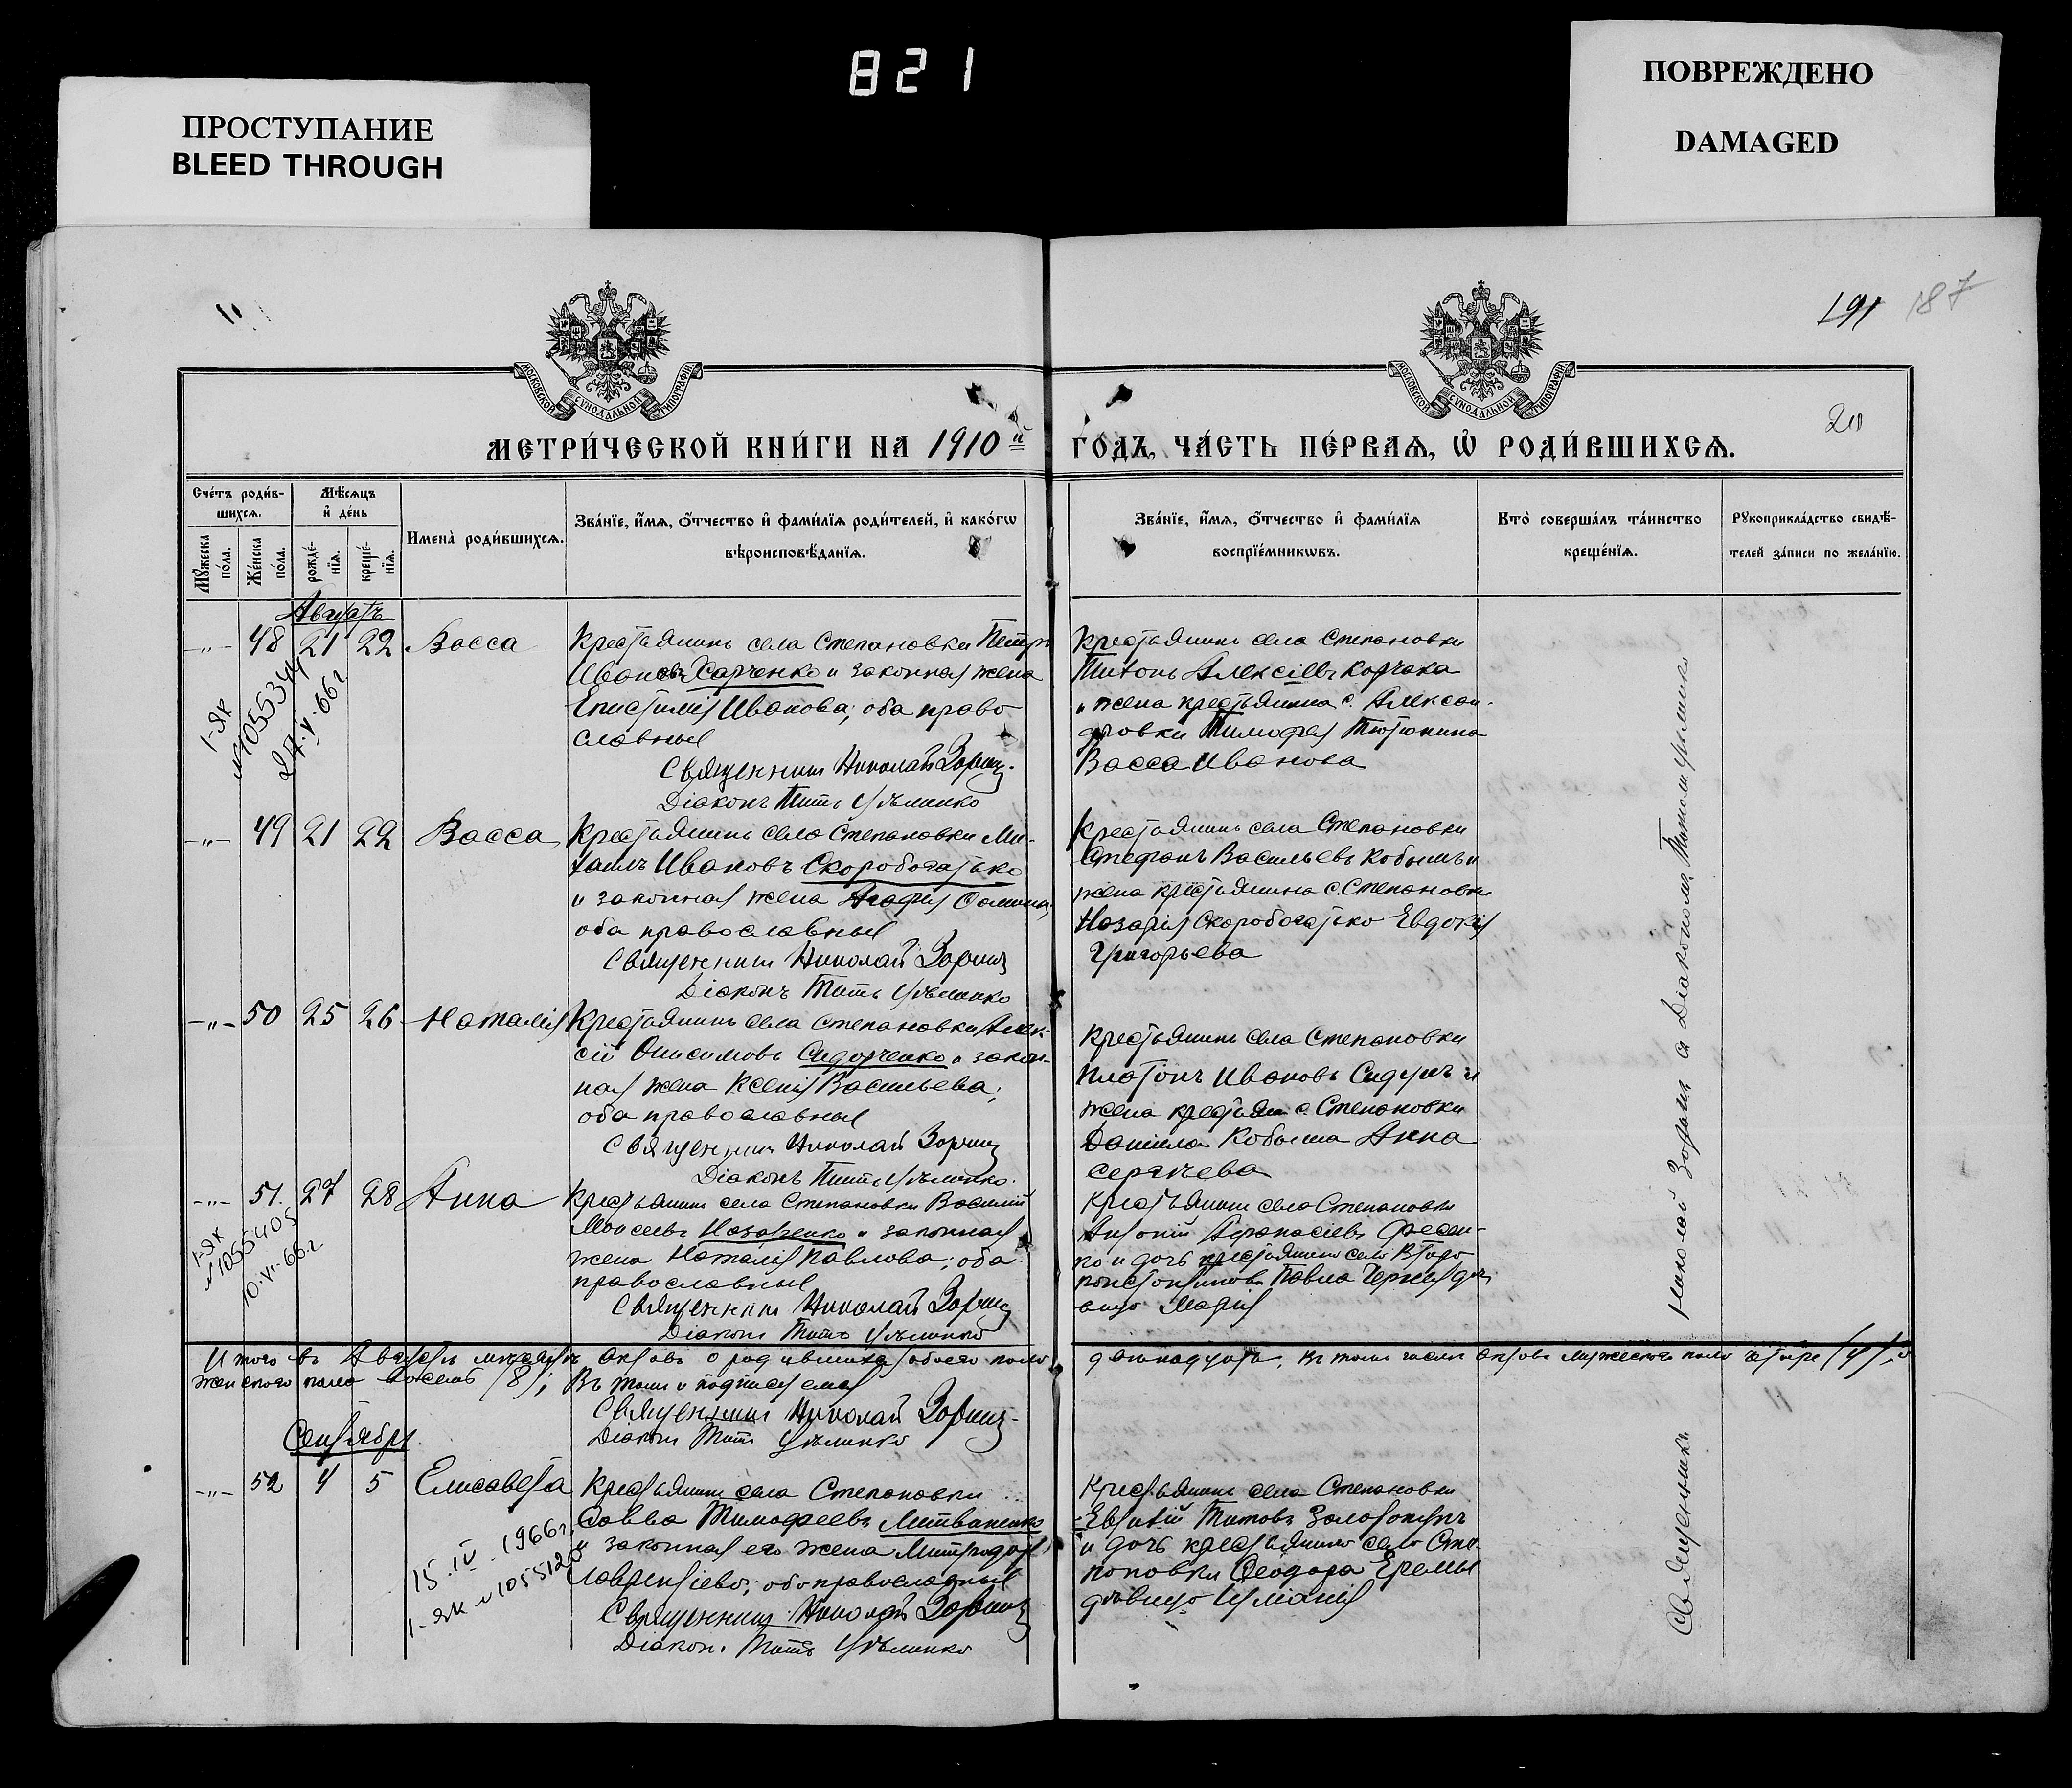 821
ПРОСТУПАНИЕ
BLEED THROUGH
ПОВРЕЖДЕНО
DAMAGED
191 187
МОСКОВСКОЙ СУНОДАЛЬНОЙ ТИПОГРАФІИ
МОСКОВСКОЙ СУНОДАЛЬНОЙ ТИПОГРАФІИ
МЕТРИ́ЧЕСКОЙ КНИ́ГИ НА 1910й
ГО́ДЪ, ЧА́СТЬ ПЕ́РВАѦ, Ѡ҆ РОДИ́ВШИХСѦ.
Сче́тъ роди́в-
шихсѧ.
Мѣ́сяцъ
и҆ де́нь
Мꙋ́жеска
по́ла.
Же́нска
по́ла.
рожде́-
нїѧ.
креще́-
нїѧ.
Имена̀ роди́вшихсѧ.
Зва́нїе, и҆́мѧ, ѻ҆́тчество и҆ фами́лїѧ роди́телей, и҆ како́гѡ
вѣроисповѣ́данїѧ.
Зва́нїе, и҆́мѧ, ѻ҆́тчество и҆ фами́лїѧ
воспрїе́мникѡвъ.
Кто̀ соверша́лъ та́инство
креще́нїѧ.
Рꙋкоприкла́дство свидѣ́-
телей за́писи по жела́нїю.
Августъ
-"- 48 21 22 Васса
Крестьянинъ села Степановки Петръ
Ивановъ Харченко и законная жена
Епистимія Иванова; оба право
славные
Священникъ Николай Зоринъ.
Діаконъ Титъ
Крестьянинъ села Степановки
Титонъ Алексіевъ Корчака
и жена крестьянина с. Алексан-
дровки Тимофея Тютюнина
Васса Иванова
1-ЯК
№1055344
27.V.66г
-"- 49 21 22 Васса
Крестьянинъ села Степановки Ми-
хаилъ Ивановъ Скоробогатько
и законная жена Агафія Фомина,
оба православные
Священникъ Николай Зоринъ
Діаконъ Титъ
Крестьянинъ села Степановки
Стефанъ Васильевъ Кобылъ и
жена крестьянина с. Степановки
Назарія Скоробогатько Евдокія
Григорьева
-"- 50 25 26 Наталія
Крестьянинъ села Степановки Алек-
сій Онисимовъ Сидорченко и закон-
ная жена Ксенія Васильева;
оба православные
Священникъ Николай Зоринъ
Діаконъ Титъ
Крестьянинъ села Степановки
Платонъ Ивановъ Сидунъ и
жена крестьян с. Степановки
Даніила Кобыла Анна
Сергѣева
-"- 51. 27 28 Анна
Крестьянинъ села Степановки Василій
Моисеевъ Назаренко и законная
жена Наталія Павлова; оба
православные
Священникъ Николай Зоринъ
Діаконъ Титъ
Крестьянинъ села Степановки
Антоній Афанасіевъ Фесен-
ко и дочь крестьянина села
Павла
Марія
1-ЯК
№1055405
10.VI.66г.
Итого въ Августѣ мѣсяцѣ актовъ о родившихся обоего пола
двѣнадцать, въ томъ числѣ актовъ мужескаго пола четыре (4), и
женскаго пола восемь (8); Въ томъ и подписуемся
Священникъ Николай Зоринъ.
Діаконъ Титъ
Сентябрь
-"- 52 4 5 Елисавета
Крестьянинъ села Степановки
Савва Тимофеевъ Литвиненко
и законная его жена Митродора
Лаврентіева; оба православные
Священникъ Николай Зоринъ
Діакон. Титъ
Крестьянинъ села Степановки
Евфимій Титовъ
и дочь крестьянина села Сте-
пановки Феодора Еремы
дѣвица
15.IV.1966г.
1-ЯК №1055120
Священникъ Николай Зоринъ съ Діакономъ Титомъ